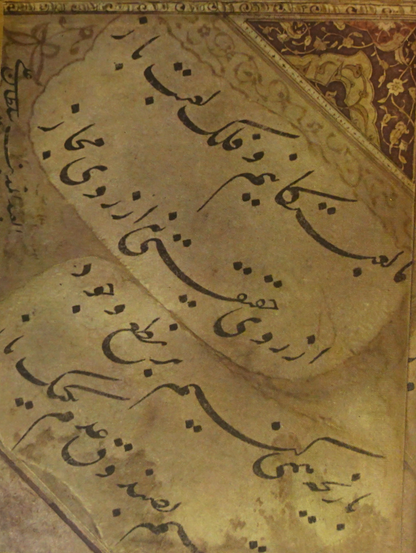 ما لعبتکانیم و فلک لعبت باز
از روی حقیقتی نه از روی مجاز
بازیچه همی کنیم بر نطع وجود
بصندوق عدم یک یک باز